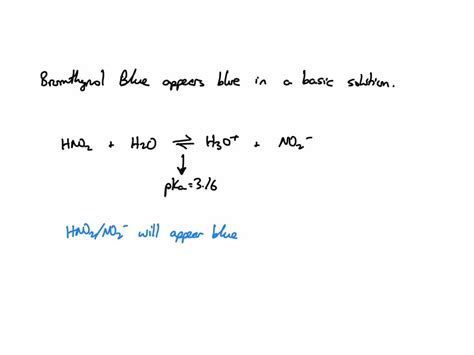 Bromthymol Blue appears blue in a basic solution.
HNO₂ + H₂O ⇌ H₃O⁺ + NO₂⁻
pKa = 3.16
HNO₂/NO₂⁻ will appear blue